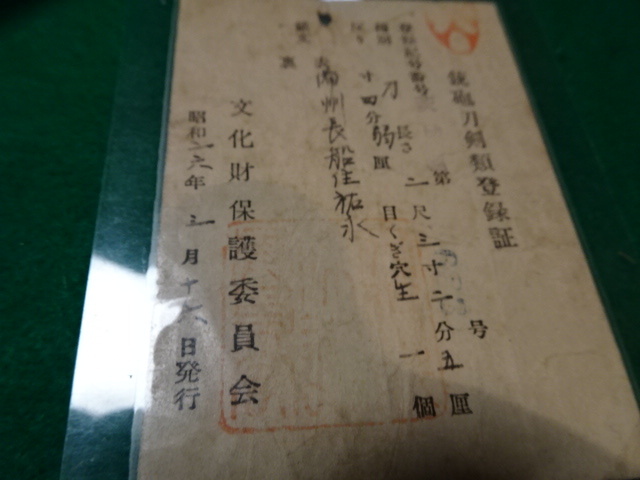 銃砲刀剣類登録証
登録記号番号 第 号
種別 刀 長さ 二尺三寸二分五厘
反り 寸四分弱厘 目くぎ穴 生 一個
銘文 表 備州長船住祐永
裏
文化財保護委員会
昭和二六年三月十六日発行